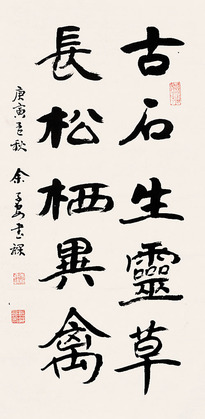 古石生靈草
長松栖異禽
庚寅
秋
余
書